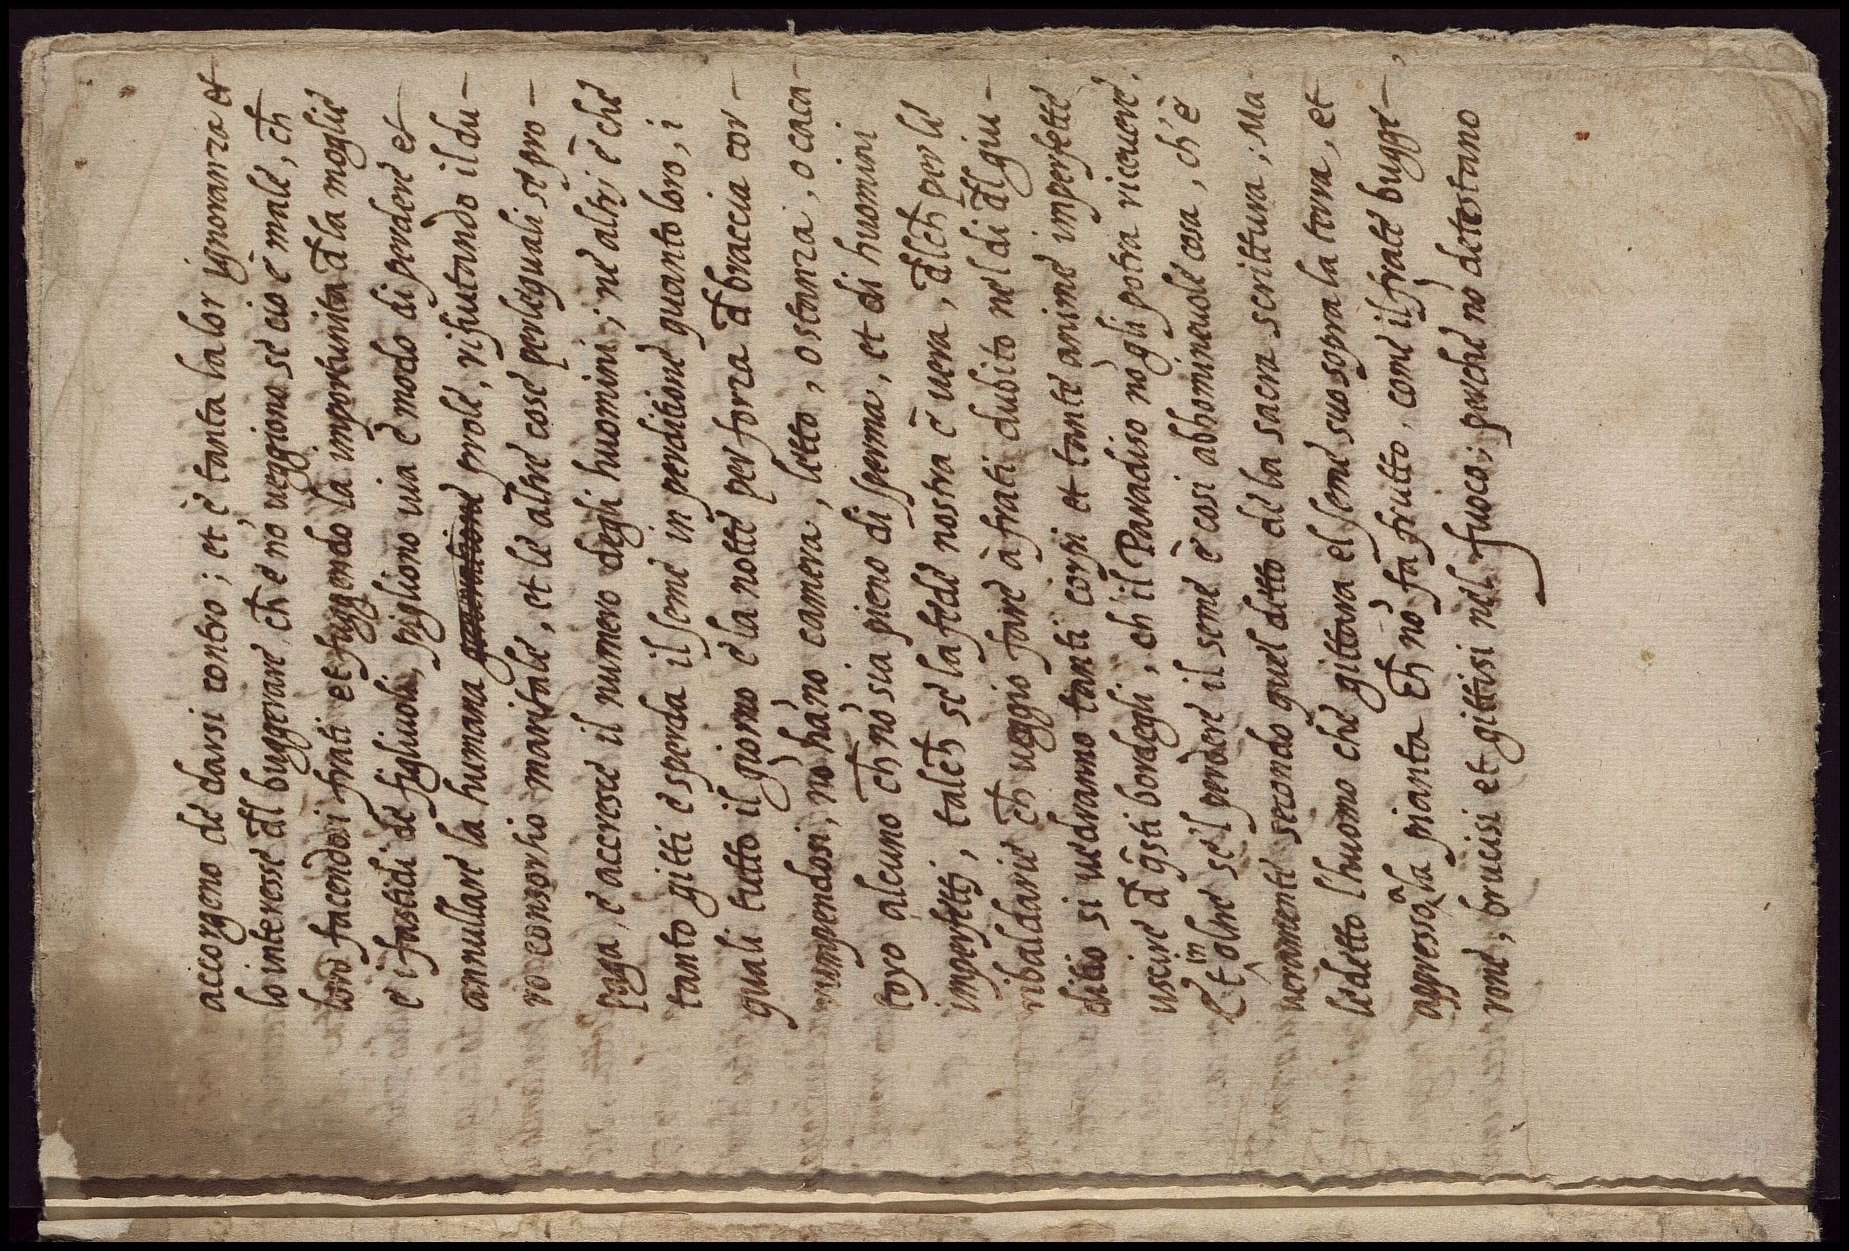 accorgeno de darsi contro; et è tanta la lor ignoranza et
lo interesse d̄l buggerare ch̄ e nō ueggiono se ciò è male, ch̄
loro facendosi frati et fuggendo la importunità d̄ la moglie
e i fastidi de figliuoli, pigliono uia e modo di perdere et
annullare la humana generatione prole, rifiutando il du-
ro consortio maritale, et le altre cose per le quali se pro-
paga, e accresce il numero degli huomini; ne altri è che
tanto gitti e sperda il seme in perditione quanto loro, i
quali tutto il giorno e la notte per forza d̄ braccia cor-
rumpendosi, nō hāno camera, letto, o stanza, o caca-
toro alcuno ch̄ nō sia pieno di sperma, et di huomini
imperfetti, talch̄ se la fede nostra è uera, d̄lch̄ per le
ribaldarie ch̄ ueggio fare à frati dubito nel dì d̄l giu-
ditio si uedranno tanti corpi et tante anime imperfette
uscire d̄ q̄sti bordegli, ch' il Paradiso nō gli potra riceuere.
Et in oltre se'l perdere il seme è cosi abhomineuole cosa, ch'è
ueramente secondo quel detto de la sacra scrittura; Ma
ledetto l'huomo che gittara el seme suo sopra la terra, et
appresso a la pianta ch̄ nō fa frutto, come il frate bugge-
rone, brucisi et gittisi nel fuoco; perche nō detestano